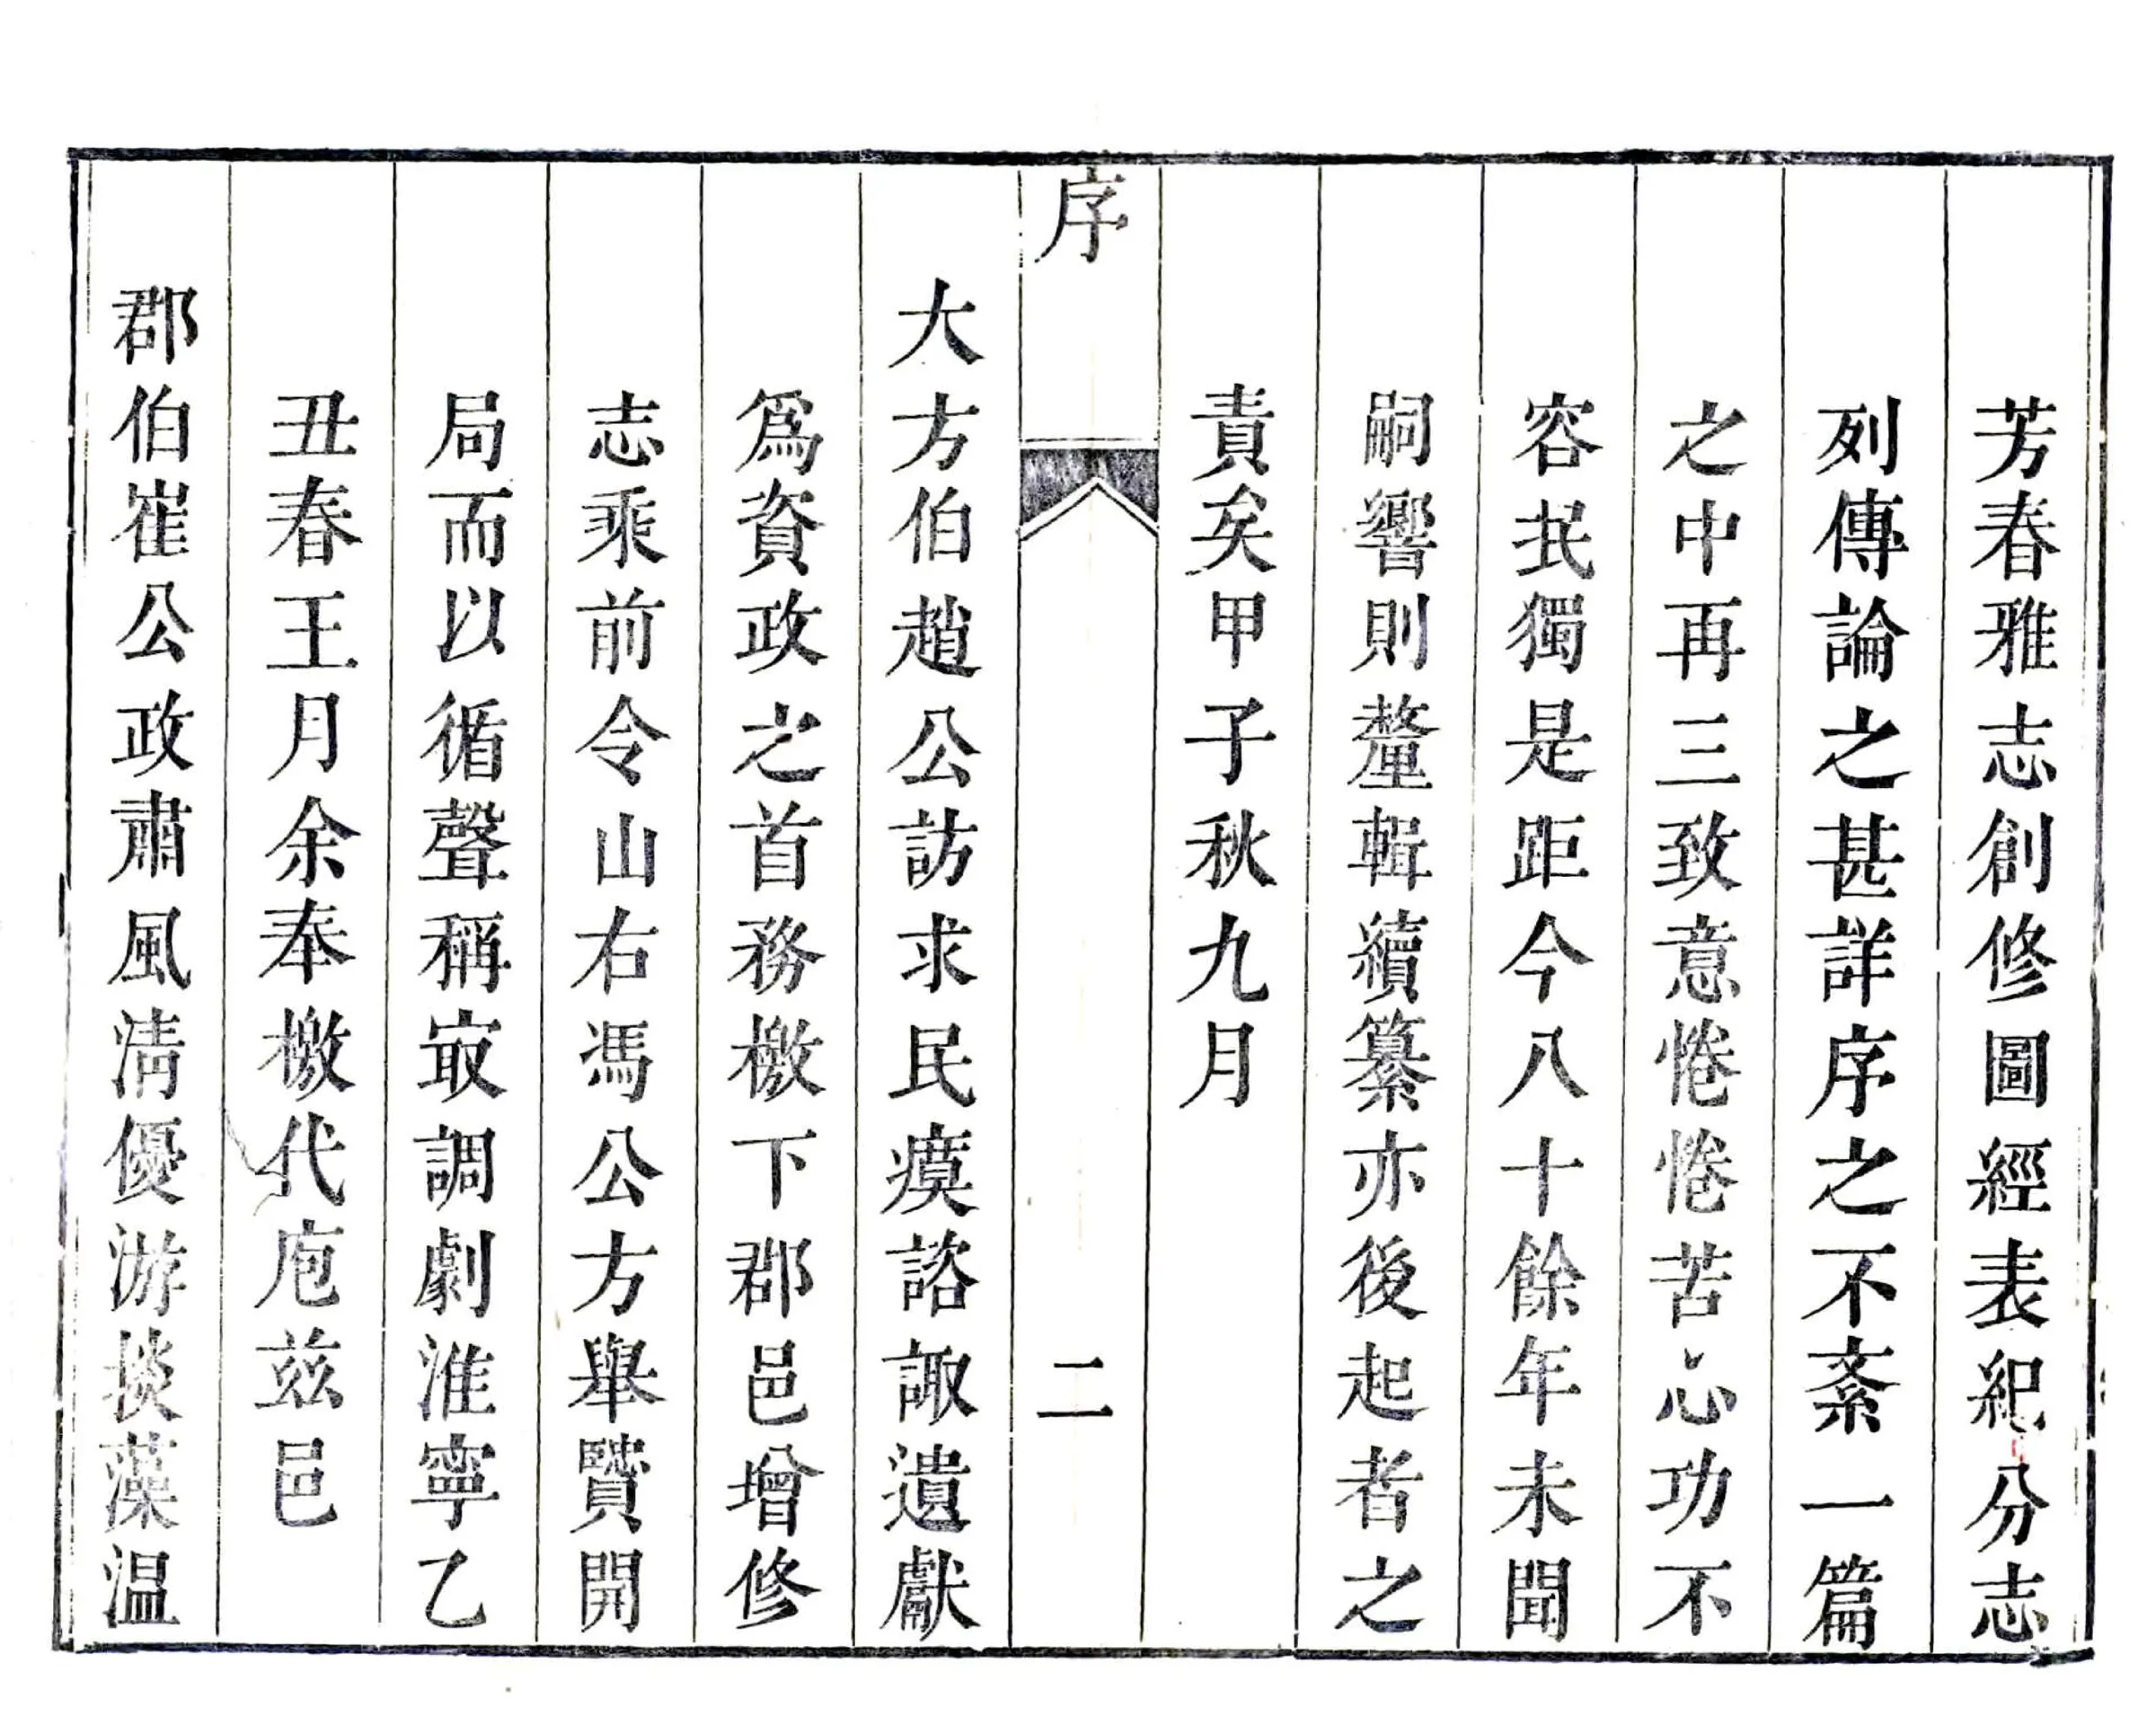 芳春雅志創修圖經表紀分志
列傳論之甚詳序之不紊一篇
之中再三致意惓惓苦心功不
容泯獨是距今八十餘年未聞
嗣響則釐輯續纂亦後起者之
責矣甲子秋九月
序
二
大方伯趙公訪求民瘼諮諏遺獻
爲資政之首務檄下郡邑增修
志乘前令山右馮公方舉贒開
局而以循聲稱㝡調劇淮寧乙
丑春王月余奉檄代庖茲邑
郡伯崔公政肅風清優游掞藻温